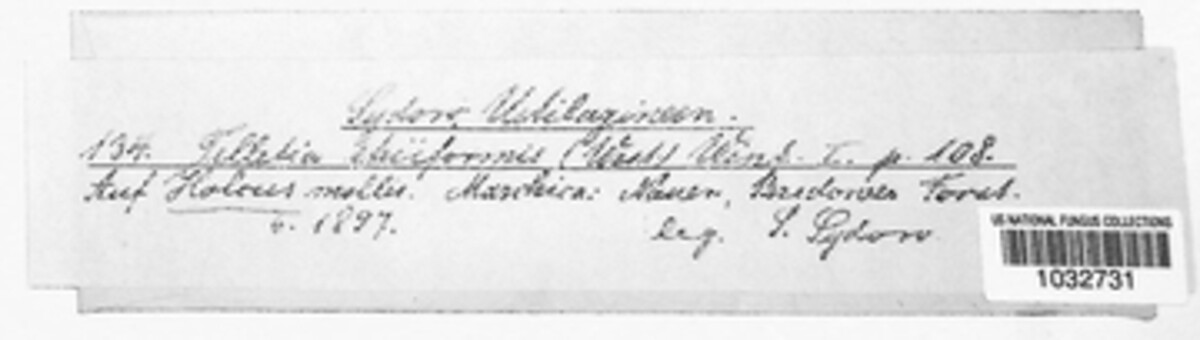 Sydow, Ustilagineen.
134. Tilletia striiformis (West) Wint. I. p. 108.
Auf Holcus mollis. Marchica: Nauen, Bredower Forst.
6. 1897. leg. P. Sydow
US NATIONAL FUNGUS COLLECTIONS
1032731